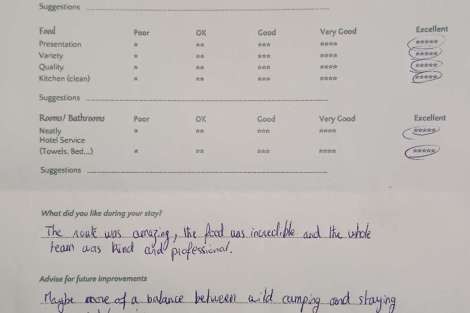 Suggestions
Food Poor OK Good Very Good Excellent
Presentation * ** *** **** *****
Variety * ** *** **** *****
Quality * ** *** **** *****
Kitchen (clean) * ** *** **** *****
Suggestions
Rooms/ Bathrooms Poor OK Good Very Good Excellent
Neatly * ** *** **** *****
Hotel Service
(Towels, Bed...) * ** *** **** *****
Suggestions
What did you like during your stay?
The route was amazing, the food was incredible and the whole
team was kind and professional.
Advise for future improvements
Maybe more of a balance between wild camping and staying